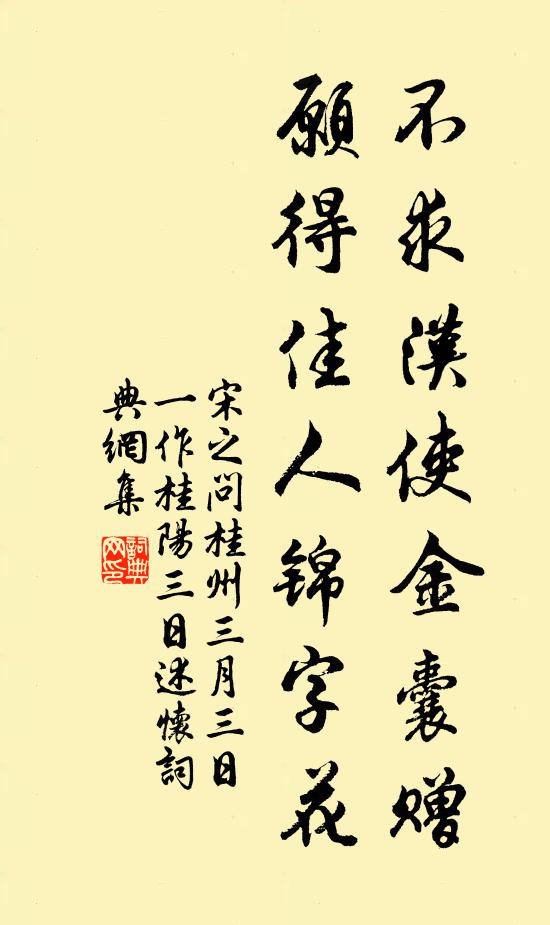 不求漢使金囊贈
願得佳人錦字花
宋之問桂州三月三日
一作桂陽三日述懷詞
典網集
詞典網印